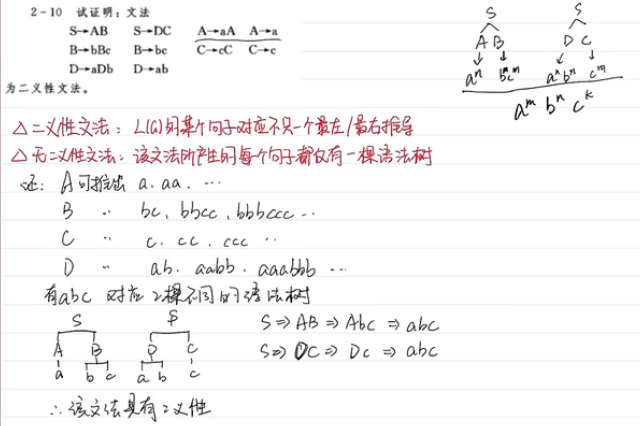 2-10 试证明：文法
S→AB S→DC A→aA A→a
B→bBc B→bc C→cC C→c
D→aDb D→ab
为二义性文法。
S S
A B D C
aⁿ bᵐcᵐ aⁿbⁿ cᵐ
aᵐ bⁿ cᵏ
△二义性文法：L(G)的某个句子对应不只一个最左/最右推导
△无二义性文法：该文法所产生的每个句子都仅有一棵语法树
证：A可推出 a. aa. …
B 〃 bc, bbcc, bbbccc …
C 〃 c. cc. ccc …
D 〃 ab. aabb. aaabbb …
有abc 对应2棵不同的语法树
S S
A B D C
a b c a b c
S⇒AB⇒Abc⇒abc
S⇒DC⇒Dc⇒abc
∴该文法具有二义性